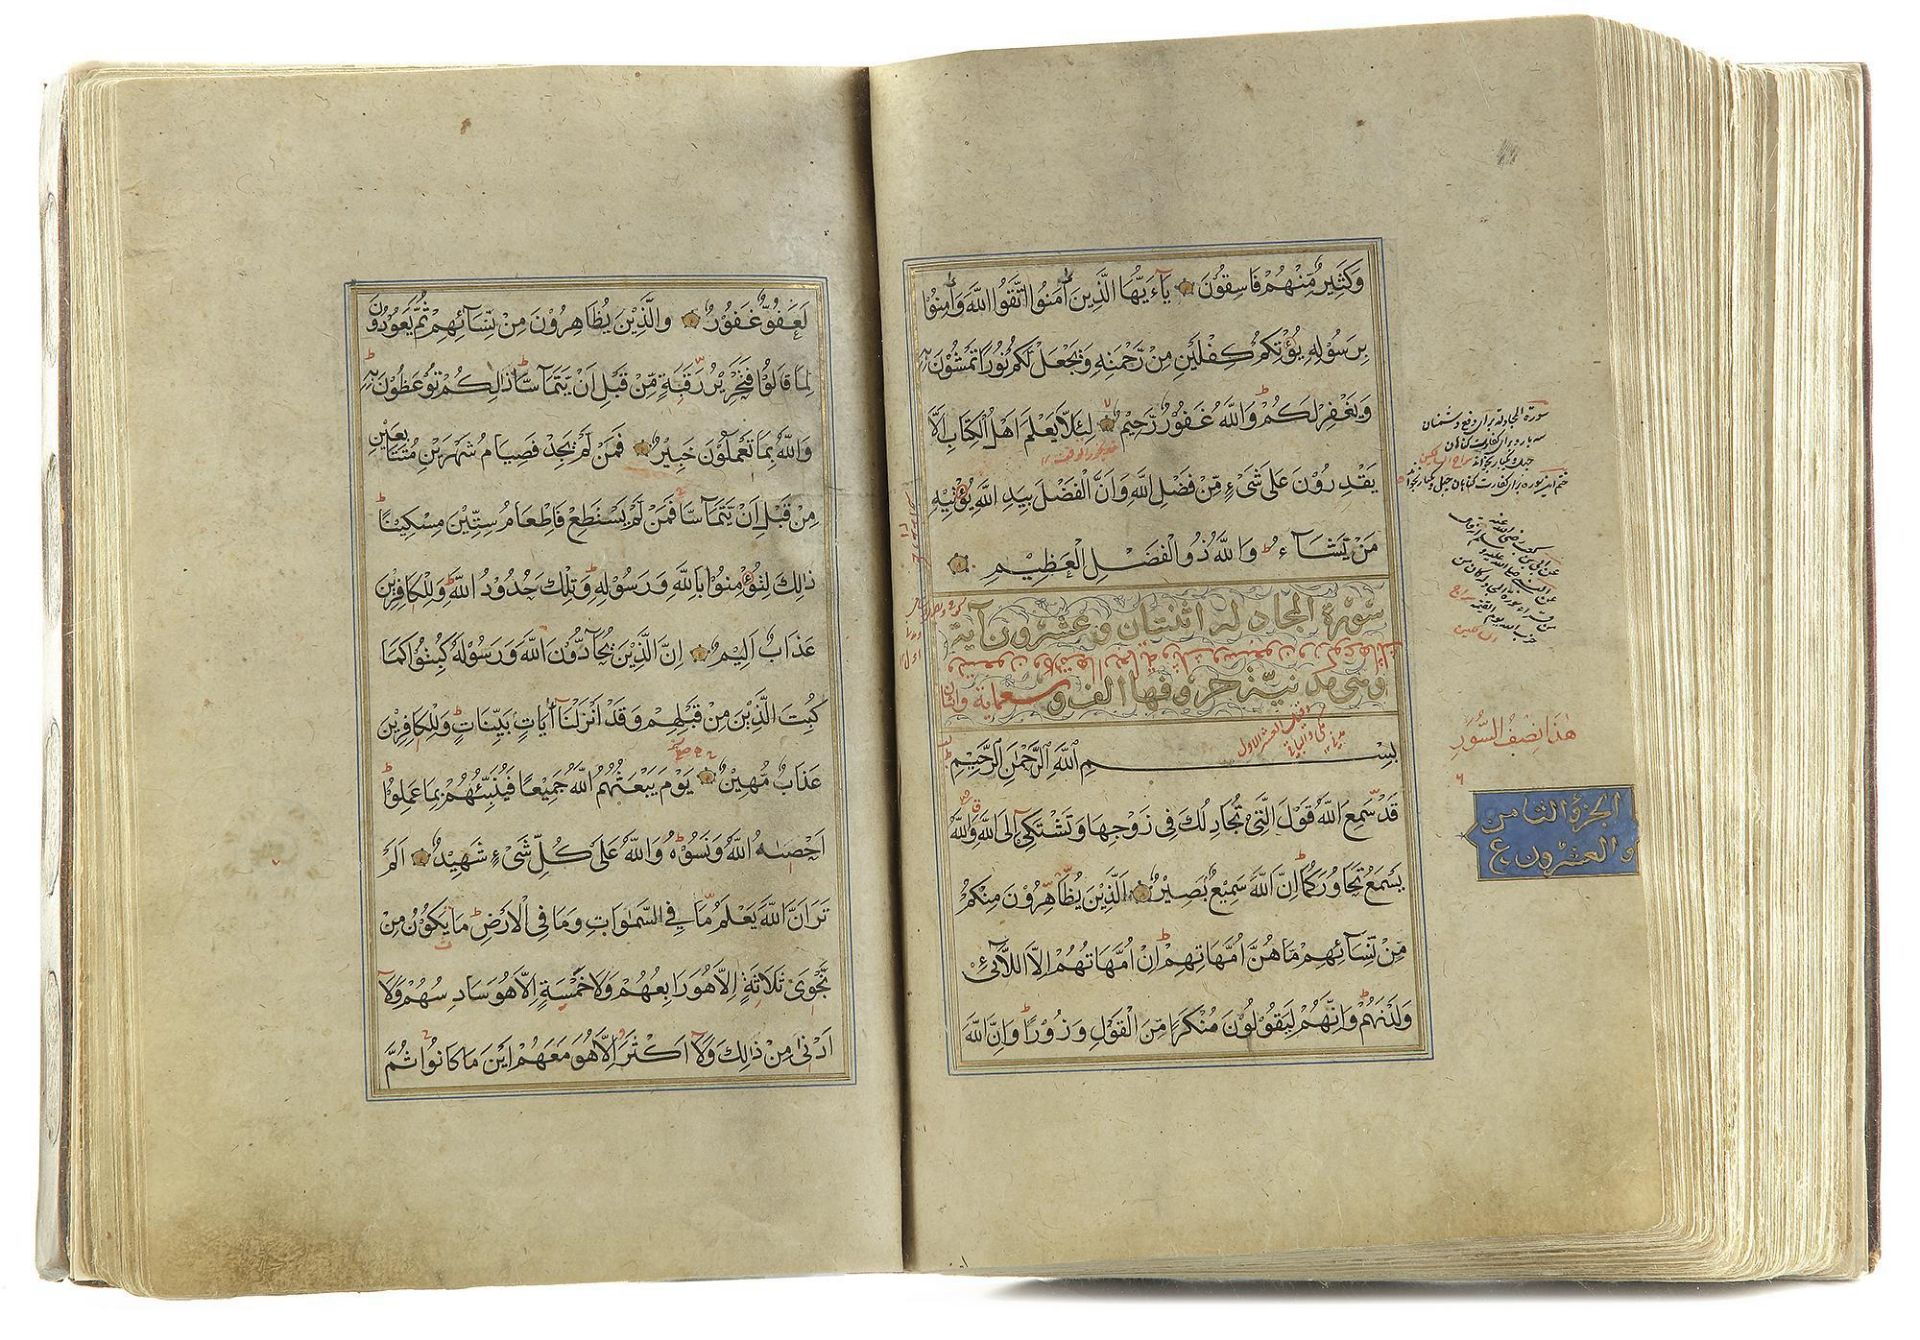 وَكَثِيرٌ مِّنْهُمْ فَاسِقُونَ يَاءَيُّهَا الَّذِينَ اٰمَنُوا اتَّقُوا اللّٰهَ وَاٰمِنُوا
بِرَسُولِهِ يُؤْتِكُمْ كِفْلَيْنِ مِنْ رَّحْمَتِهِ وَيَجْعَلْ لَكُمْ نُورًا تَمْشُونَ بِهِ
وَيَغْفِرْ لَكُمْ وَاللّٰهُ غَفُورٌ رَّحِيمٌ لِئَلَّا يَعْلَمَ اَهْلُ الْكِتَابِ اَلَّا
يَقْدِرُونَ عَلَى شَىْءٍ مِّنْ فَضْلِ اللّٰهِ وَاَنَّ الْفَضْلَ بِيَدِ اللّٰهِ يُؤْتِيهِ
مَنْ يَّشَآءُ وَاللّٰهُ ذُو الْفَضْلِ الْعَظِيمِ
سورة المجادلة اثنتان وعشرون آية
وهي مدنية حروفها الف وسبعماية واثنان
بِسْمِ اللّٰهِ الرَّحْمٰنِ الرَّحِيمِ
قَدْ سَّمِعَ اللّٰهُ قَوْلَ الَّتِى تُجَادِلُكَ فِى زَوْجِهَا وَتَشْتَكِىٓ اِلَى اللّٰهِ وَاللّٰهُ
يَسْمَعُ تَحَاوُرَكُمَا اِنَّ اللّٰهَ سَمِيعٌ بَصِيرٌ اَلَّذِينَ يُظَاهِرُونَ مِنْكُمْ
مِّنْ نِّسَآئِهِمْ مَّا هُنَّ اُمَّهَاتِهِمْ اِنْ اُمَّهَاتُهُمْ اِلَّا اللَّآئِى
وَلَدْنَهُمْ وَاِنَّهُمْ لَيَقُولُونَ مُنْكَرًا مِّنَ الْقَوْلِ وَزُورًا وَاِنَّ اللّٰهَ
هٰذَا نِصْفُ السُّوَرِ
الجزء الثامن
والعشرون
لَعَفُوٌّ غَفُورٌ وَالَّذِينَ يُظَاهِرُونَ مِنْ نِّسَآئِهِمْ ثُمَّ يَعُودُونَ
لِمَا قَالُوا فَتَحْرِيرُ رَقَبَةٍ مِّنْ قَبْلِ اَنْ يَّتَمَآسَّا ذَالِكُمْ تُوعَظُونَ بِهِ
وَاللّٰهُ بِمَا تَعْمَلُونَ خَبِيرٌ فَمَنْ لَّمْ يَجِدْ فَصِيَامُ شَهْرَيْنِ مُتَتَابِعَيْنِ
مِنْ قَبْلِ اَنْ يَّتَمَآسَّا فَمَنْ لَّمْ يَسْتَطِعْ فَاِطْعَامُ سِتِّينَ مِسْكِينًا
ذَالِكَ لِتُؤْمِنُوا بِاللّٰهِ وَرَسُولِهِ وَتِلْكَ حُدُودُ اللّٰهِ وَلِلْكَافِرِينَ
عَذَابٌ اَلِيمٌ اِنَّ الَّذِينَ يُحَآدُّونَ اللّٰهَ وَرَسُولَهُ كُبِتُوا كَمَا
كُبِتَ الَّذِينَ مِنْ قَبْلِهِمْ وَقَدْ اَنْزَلْنَا اٰيَاتٍ بَيِّنَاتٍ وَلِلْكَافِرِينَ
عَذَابٌ مُّهِينٌ يَوْمَ يَبْعَثُهُمُ اللّٰهُ جَمِيعًا فَيُنَبِّئُهُمْ بِمَا عَمِلُوا
اَحْصٰىهُ اللّٰهُ وَنَسُوهُ وَاللّٰهُ عَلَى كُلِّ شَىْءٍ شَهِيدٌ اَلَمْ
تَرَ اَنَّ اللّٰهَ يَعْلَمُ مَا فِى السَّمٰوَاتِ وَمَا فِى الْاَرْضِ مَا يَكُونُ مِنْ
نَّجْوَىٰ ثَلَاثَةٍ اِلَّا هُوَ رَابِعُهُمْ وَلَا خَمْسَةٍ اِلَّا هُوَ سَادِسُهُمْ وَلَآ
اَدْنٰى مِنْ ذَالِكَ وَلَآ اَكْثَرَ اِلَّا هُوَ مَعَهُمْ اَيْنَ مَا كَانُوا ثُمَّ